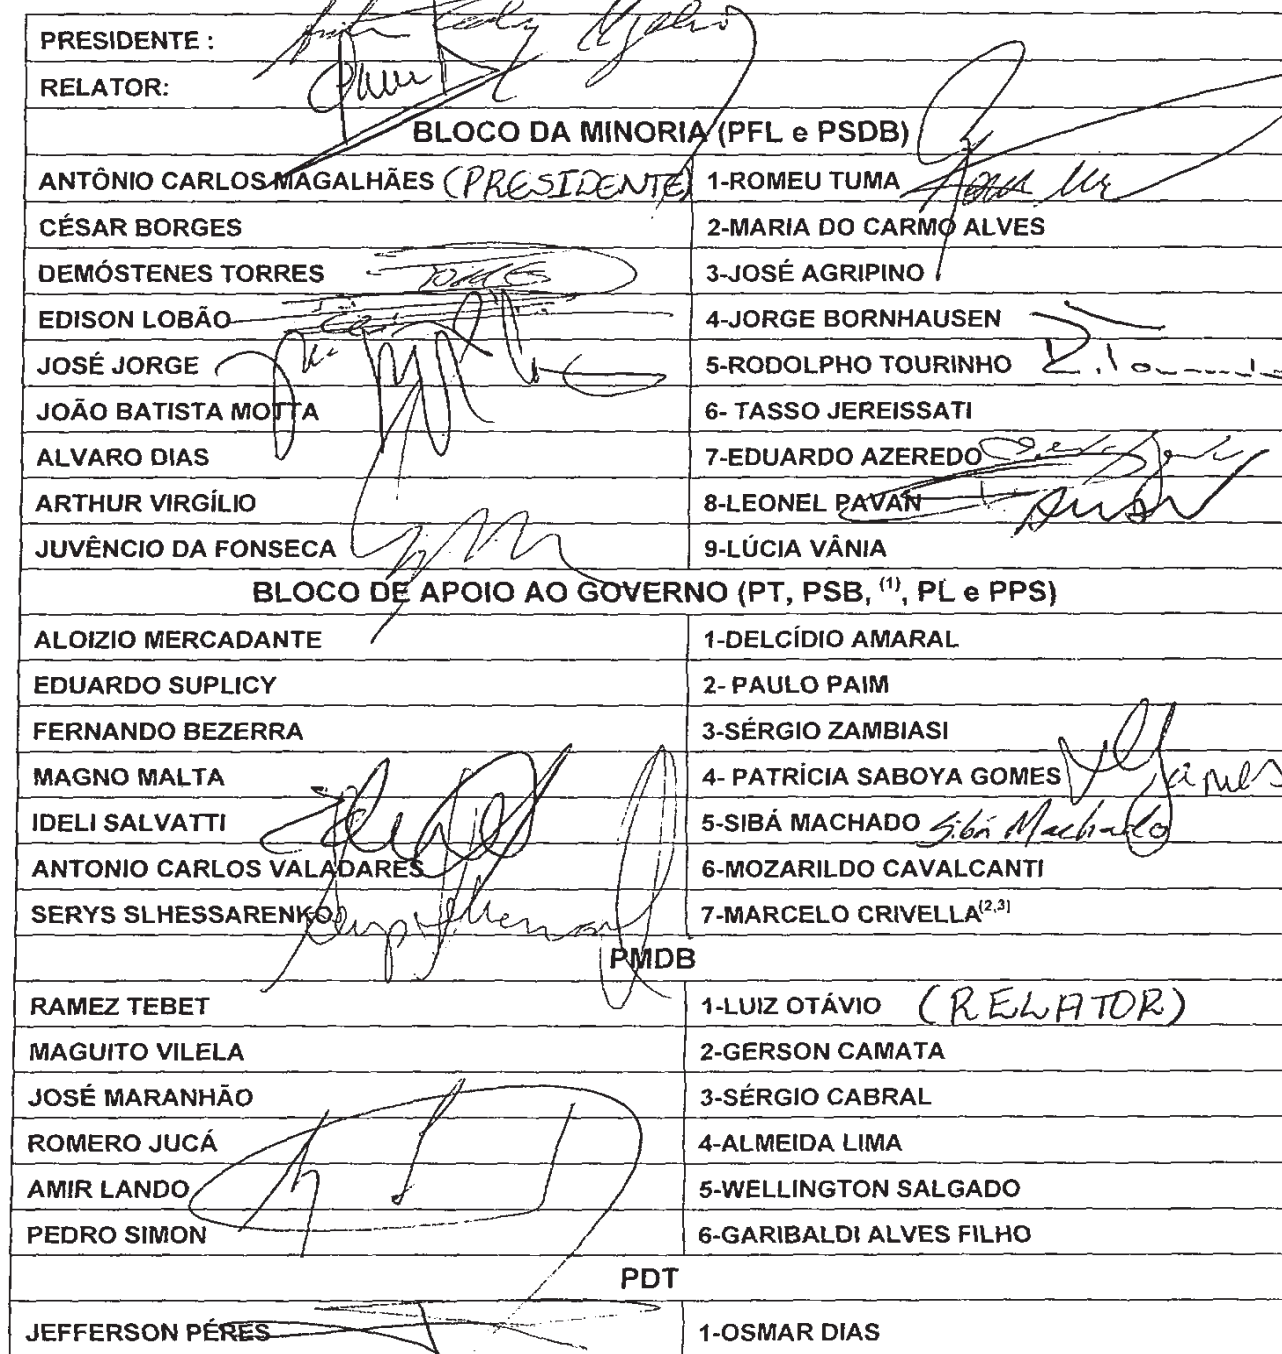 PRESIDENTE :
RELATOR:
BLOCO DA MINORIA (PFL e PSDB)
ANTÔNIO CARLOS MAGALHÃES (PRESIDENTE) 1-ROMEU TUMA
CÉSAR BORGES 2-MARIA DO CARMO ALVES
DEMÓSTENES TORRES 3-JOSÉ AGRIPINO
EDISON LOBÃO 4-JORGE BORNHAUSEN
JOSÉ JORGE 5-RODOLPHO TOURINHO
JOÃO BATISTA MOTTA 6- TASSO JEREISSATI
ALVARO DIAS 7-EDUARDO AZEREDO
ARTHUR VIRGÍLIO 8-LEONEL PAVAN
JUVÊNCIO DA FONSECA 9-LÚCIA VÂNIA
BLOCO DE APOIO AO GOVERNO (PT, PSB, (1), PL e PPS)
ALOIZIO MERCADANTE 1-DELCÍDIO AMARAL
EDUARDO SUPLICY 2- PAULO PAIM
FERNANDO BEZERRA 3-SÉRGIO ZAMBIASI
MAGNO MALTA 4- PATRÍCIA SABOYA GOMES
IDELI SALVATTI 5-SIBÁ MACHADO Sibá Machado
ANTONIO CARLOS VALADARES 6-MOZARILDO CAVALCANTI
SERYS SLHESSARENKO 7-MARCELO CRIVELLA(2,3)
PMDB
RAMEZ TEBET 1-LUIZ OTÁVIO (RELATOR)
MAGUITO VILELA 2-GERSON CAMATA
JOSÉ MARANHÃO 3-SÉRGIO CABRAL
ROMERO JUCÁ 4-ALMEIDA LIMA
AMIR LANDO 5-WELLINGTON SALGADO
PEDRO SIMON 6-GARIBALDI ALVES FILHO
PDT
JEFFERSON PÉRES 1-OSMAR DIAS